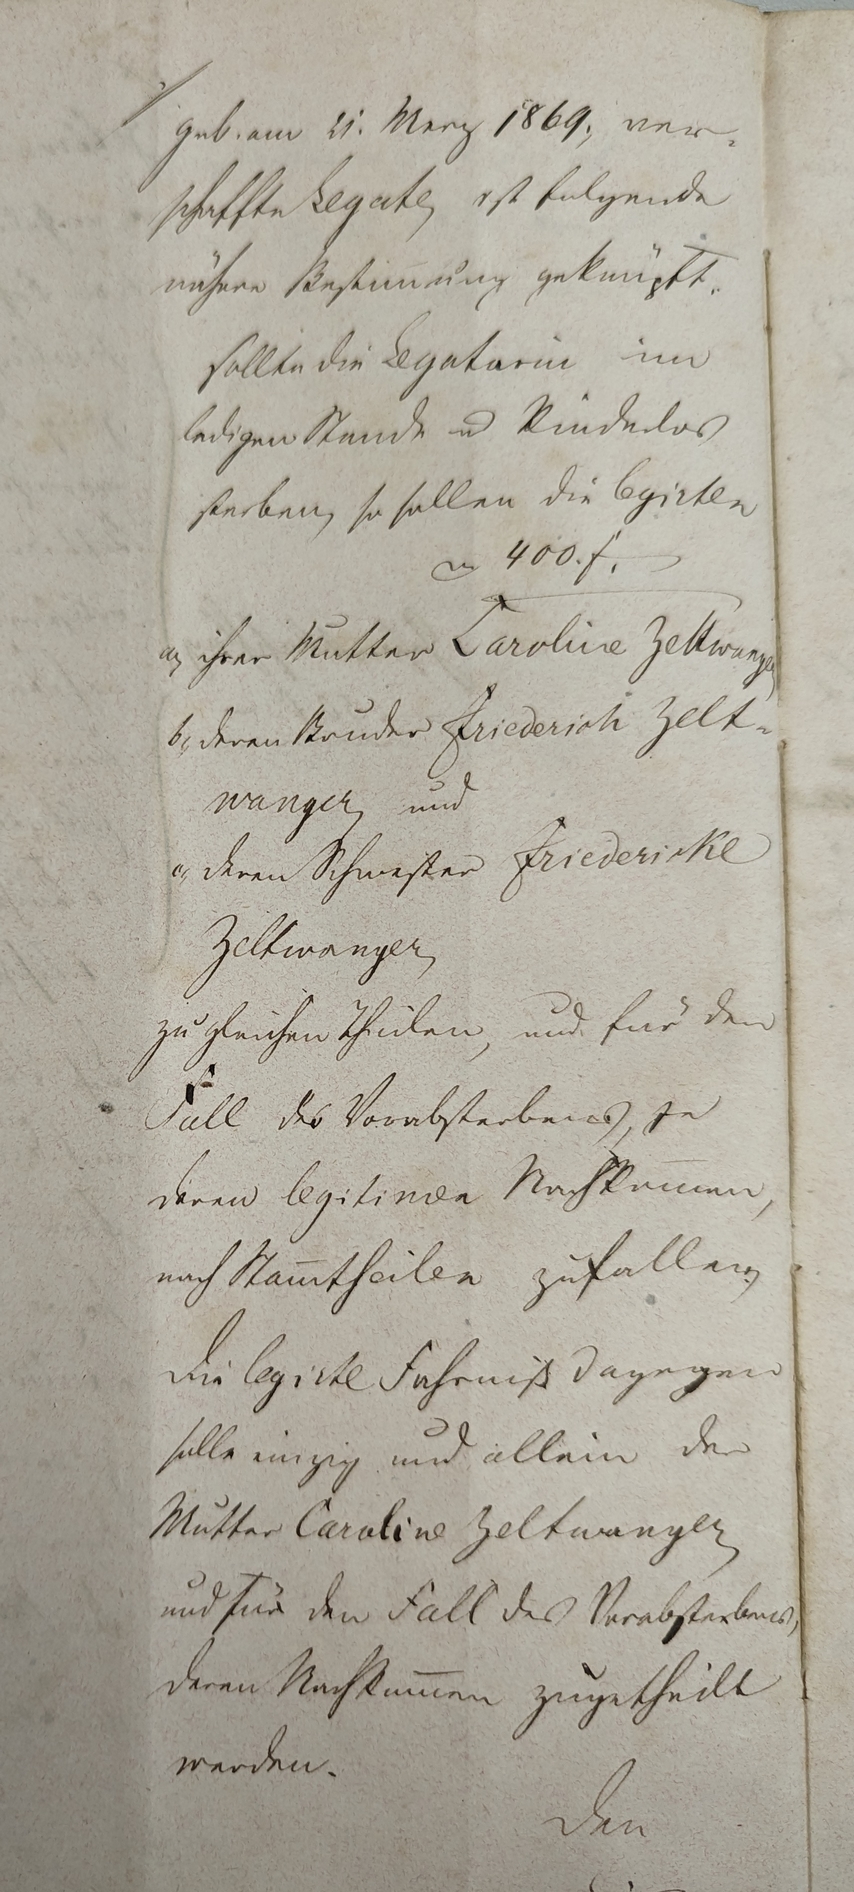 geb. am 21. Merz 1869., ver-
schaffte Legate, ist folgende
nähere Bestim̅ung geknüpft.
sollte die Legatarin im
ledigen Stande u Kinderlos
sterben, so sollen die legirten
400. f.
a, ihrer Mutter Caroline Zeltwanger,
b, deren Bruder Friederich Zelt-
wanger, und
c, deren Schwester Friedericke
Zeltwanger,
zu gleichen Theilen, und für den
Fall des Vorabsterbens, je
deren legitimen Nachkom̅en,
nach Stam̅theilen zufallen,
die legirte Fahrniß dagegen
solle einzig und allein der
Mutter Caroline Zeltwanger,
und für den Fall des Vorabsterbens,
deren Nachkom̅en zugetheilt
werden.
Den